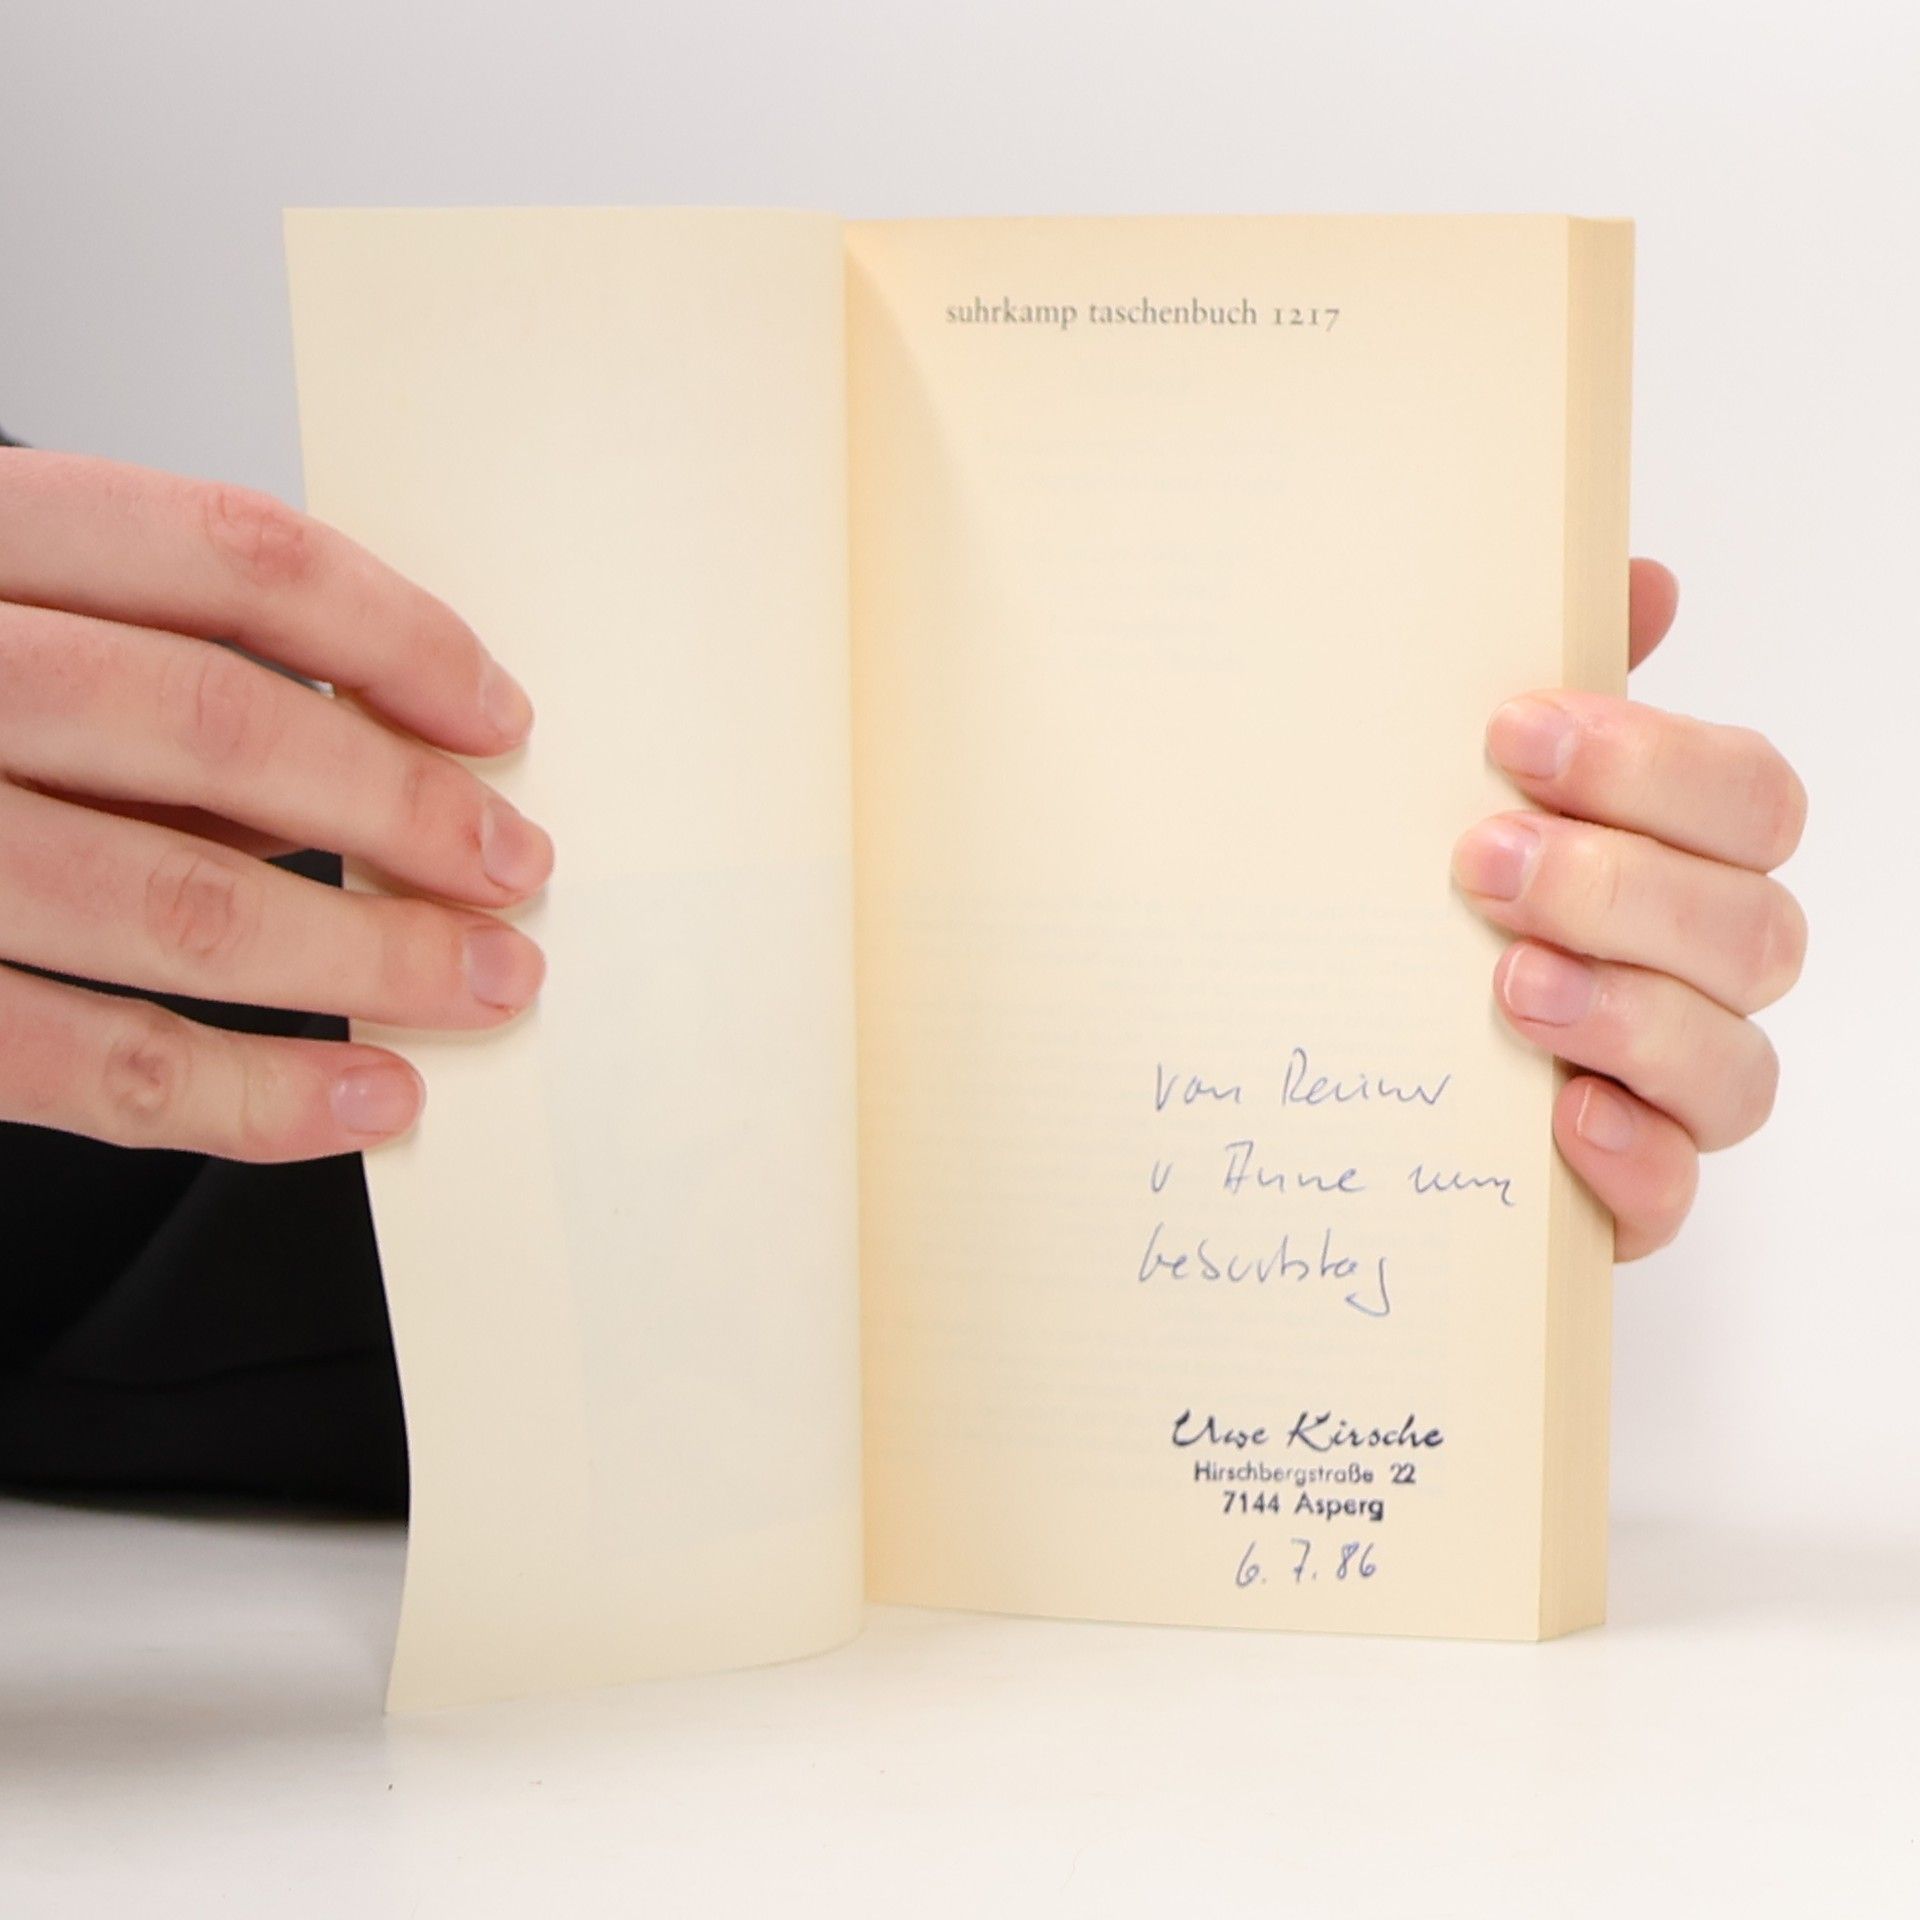 suhrkamp taschenbuch 1217
von Reiner
u Anne zum
Geburtstag
Uwe Kirsche
Hirschbergstraße 22
7144 Asperg
6. 7. 86